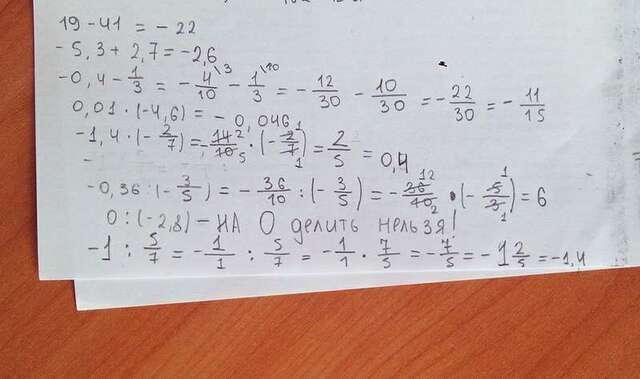 19 - 41 = - 22
- 5,3 + 2,7 = -2,6
-0,4 - 1/3 = - 4/10 \3 - 1/3 \10 = - 12/30 - 10/30 = - 22/30 = - 11/15
0,01 · (-4,6) = - 0,046
-1,4 · (- 2/7) = - 14/10 · (- 2/7) = 2/5 = 0,4
-0,36 : (- 3/5) = - 36/10 : (- 3/5) = - 36/10 · (- 5/3) = 6
0 : (-2,8) - НА 0 делить нельзя!
-1 : 5/7 = - 1/1 : 5/7 = - 1/1 · 7/5 = - 7/5 = - 1 2/5 = -1,4